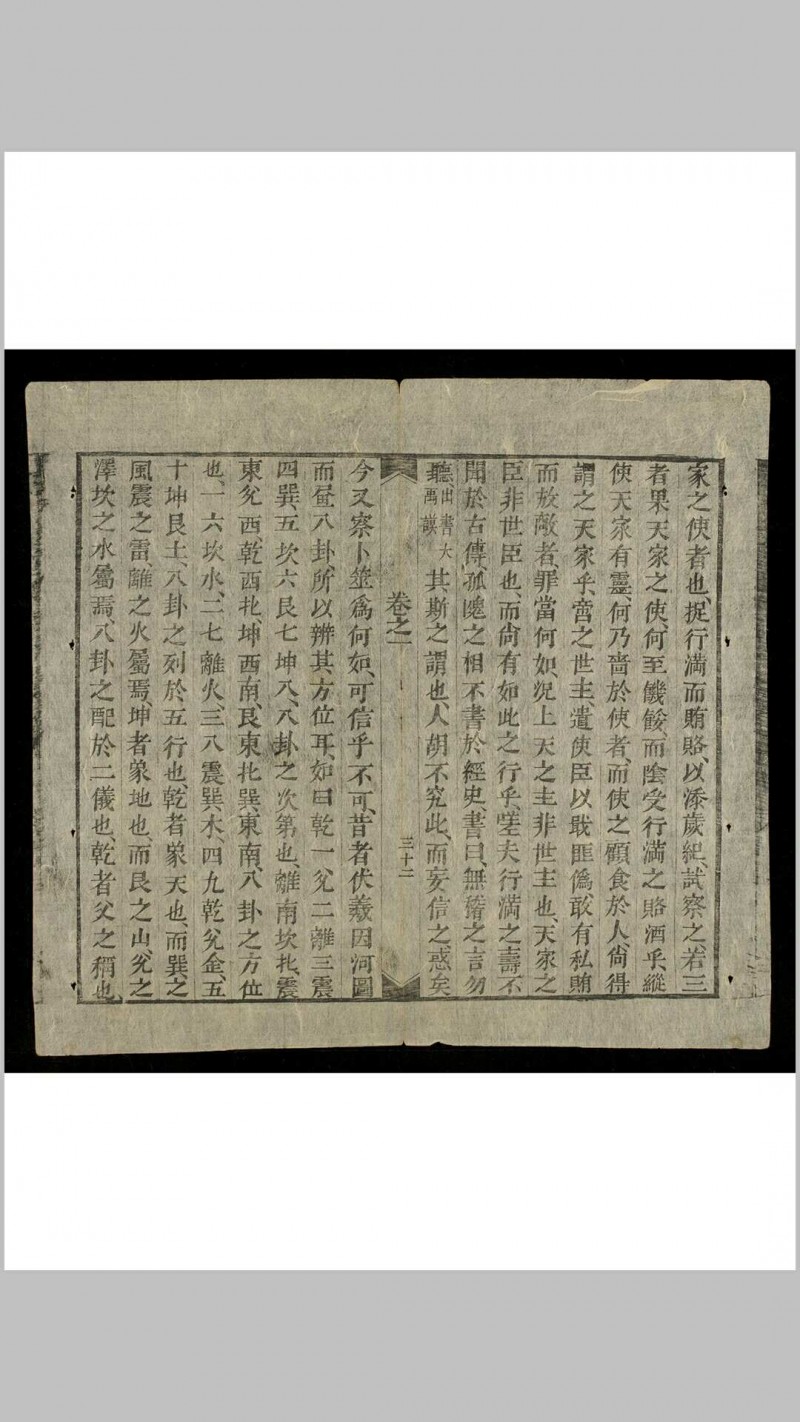 家之使者也、捉行滿而賄賂、以添歲紀、試察之、若三
者果天家之使、何至饑餒、而陰受行滿之賂酒乎、縱
使天家有靈、何乃嗇於使者、而使之顧食於人、尙得
謂之天家乎、嘗之世主、遣使臣以戢匪僞、敢有私賄
而放敵者、罪當何如、況上天之主非世主也、天家之
臣非世臣也、而尙有如此之行乎、嗟夫行滿之壽不
聞於古傳、孤魖之相不書於經史、書曰、無稽之言勿
聽、出書大禹謨其斯之謂也、人胡不究此、而妄信之、惑矣
卷之一 三十二
今又察卜筮爲何如、可信乎不可、昔者伏羲因河圖
而畫八卦、所以辨其方位耳、如曰乾一兊二離三震
四巽、五坎六艮七坤八、八卦之次第也、離南坎北、震
東兊西、乾西北、坤西南、艮東北巽、東南、八卦之方位
也、一六坎水、二七離火、三八震巽、木、四九乾兊金、五
十坤艮土、八卦之列於五行也、乾者象天也、而巽之
風震之雷、離之火屬焉、坤者象地也、而艮之山、兊之
澤坎之水屬焉、八卦之配於二儀也、乾者父之稱也、